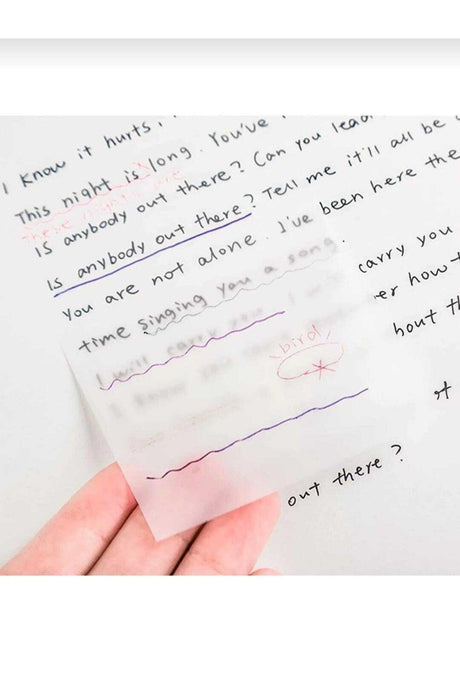 I know it hurts,
This night is long. You've
these nights are
Is anybody out there? Can you lead
Is anybody out there? Tell me it'll all be
You are not alone. I've been here the
time singing you a song.
carry you
I will carry you
er how t
bird
bout th
of
out there?